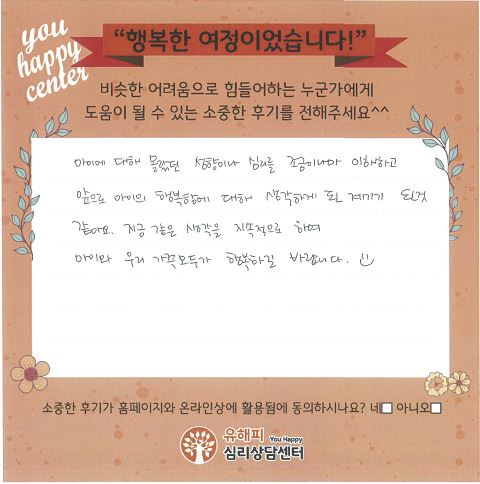 you
happy
center
“행복한 여정이었습니다!”
비슷한 어려움으로 힘들어하는 누군가에게
도움이 될 수 있는 소중한 후기를 전해주세요^^
아이에 대해 몰랐던 성향이나 심리를 조금이나마 이해하고
앞으로 아이의 행복함에 대해 생각하게 된 계기가 된것
같아요. 지금 같은 생각을 지속적으로 하며
아이와 우리 가족모두가 행복하길 바랍니다. ☺
소중한 후기가 홈페이지와 온라인상에 활용됨에 동의하시나요? 네■ 아니오□
유해피 You Happy
심리상담센터